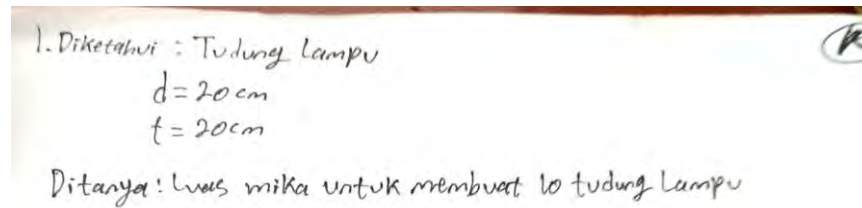 1. Diketahui : Tudung Lampu
d = 20 cm
t = 20cm
Ditanya : Luas mika untuk membuat 10 tudung Lampu